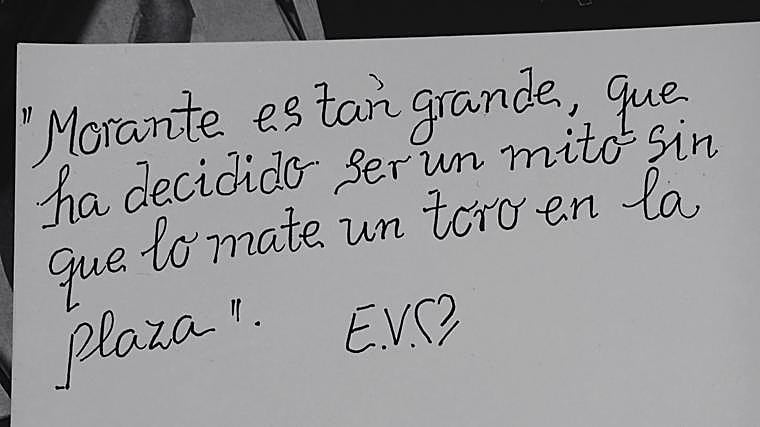 "Morante es tan grande, que
ha decidido ser un mito sin
que lo mate un toro en la
plaza". E.V.